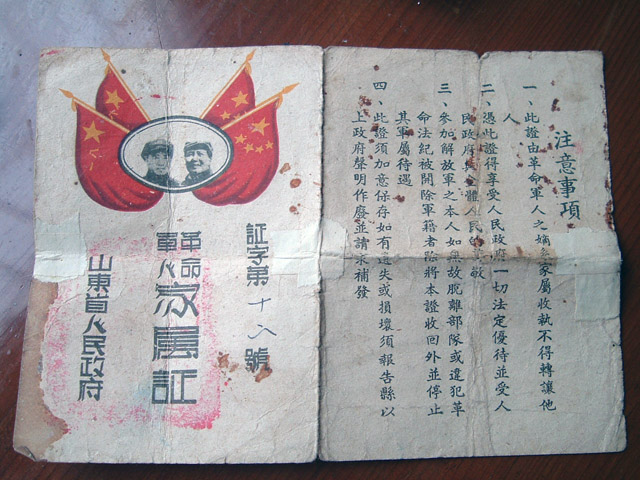 注意事項
一、此證由革命軍人之嫡家屬收執不得轉讓他
人
二、憑此證得享受人民政府一切法定優待並受人
民政府與全體人民的敬
三、參加解放軍之本人如無故脫離部隊或違犯革
命法紀被開除軍籍者除將本證收回外並停止
其軍屬待遇
四、此證須加意保存如有遺失或損壞須報告縣以
上政府聲明作廢並請求補發
証字第十八號
革命軍人家屬証
山東省人民政府